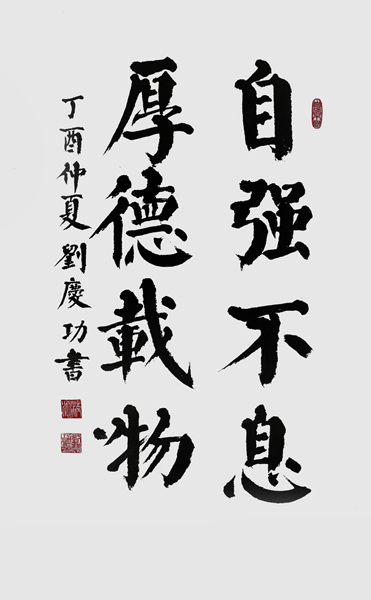 自强不息
厚德載物
丁酉仲夏劉慶功書